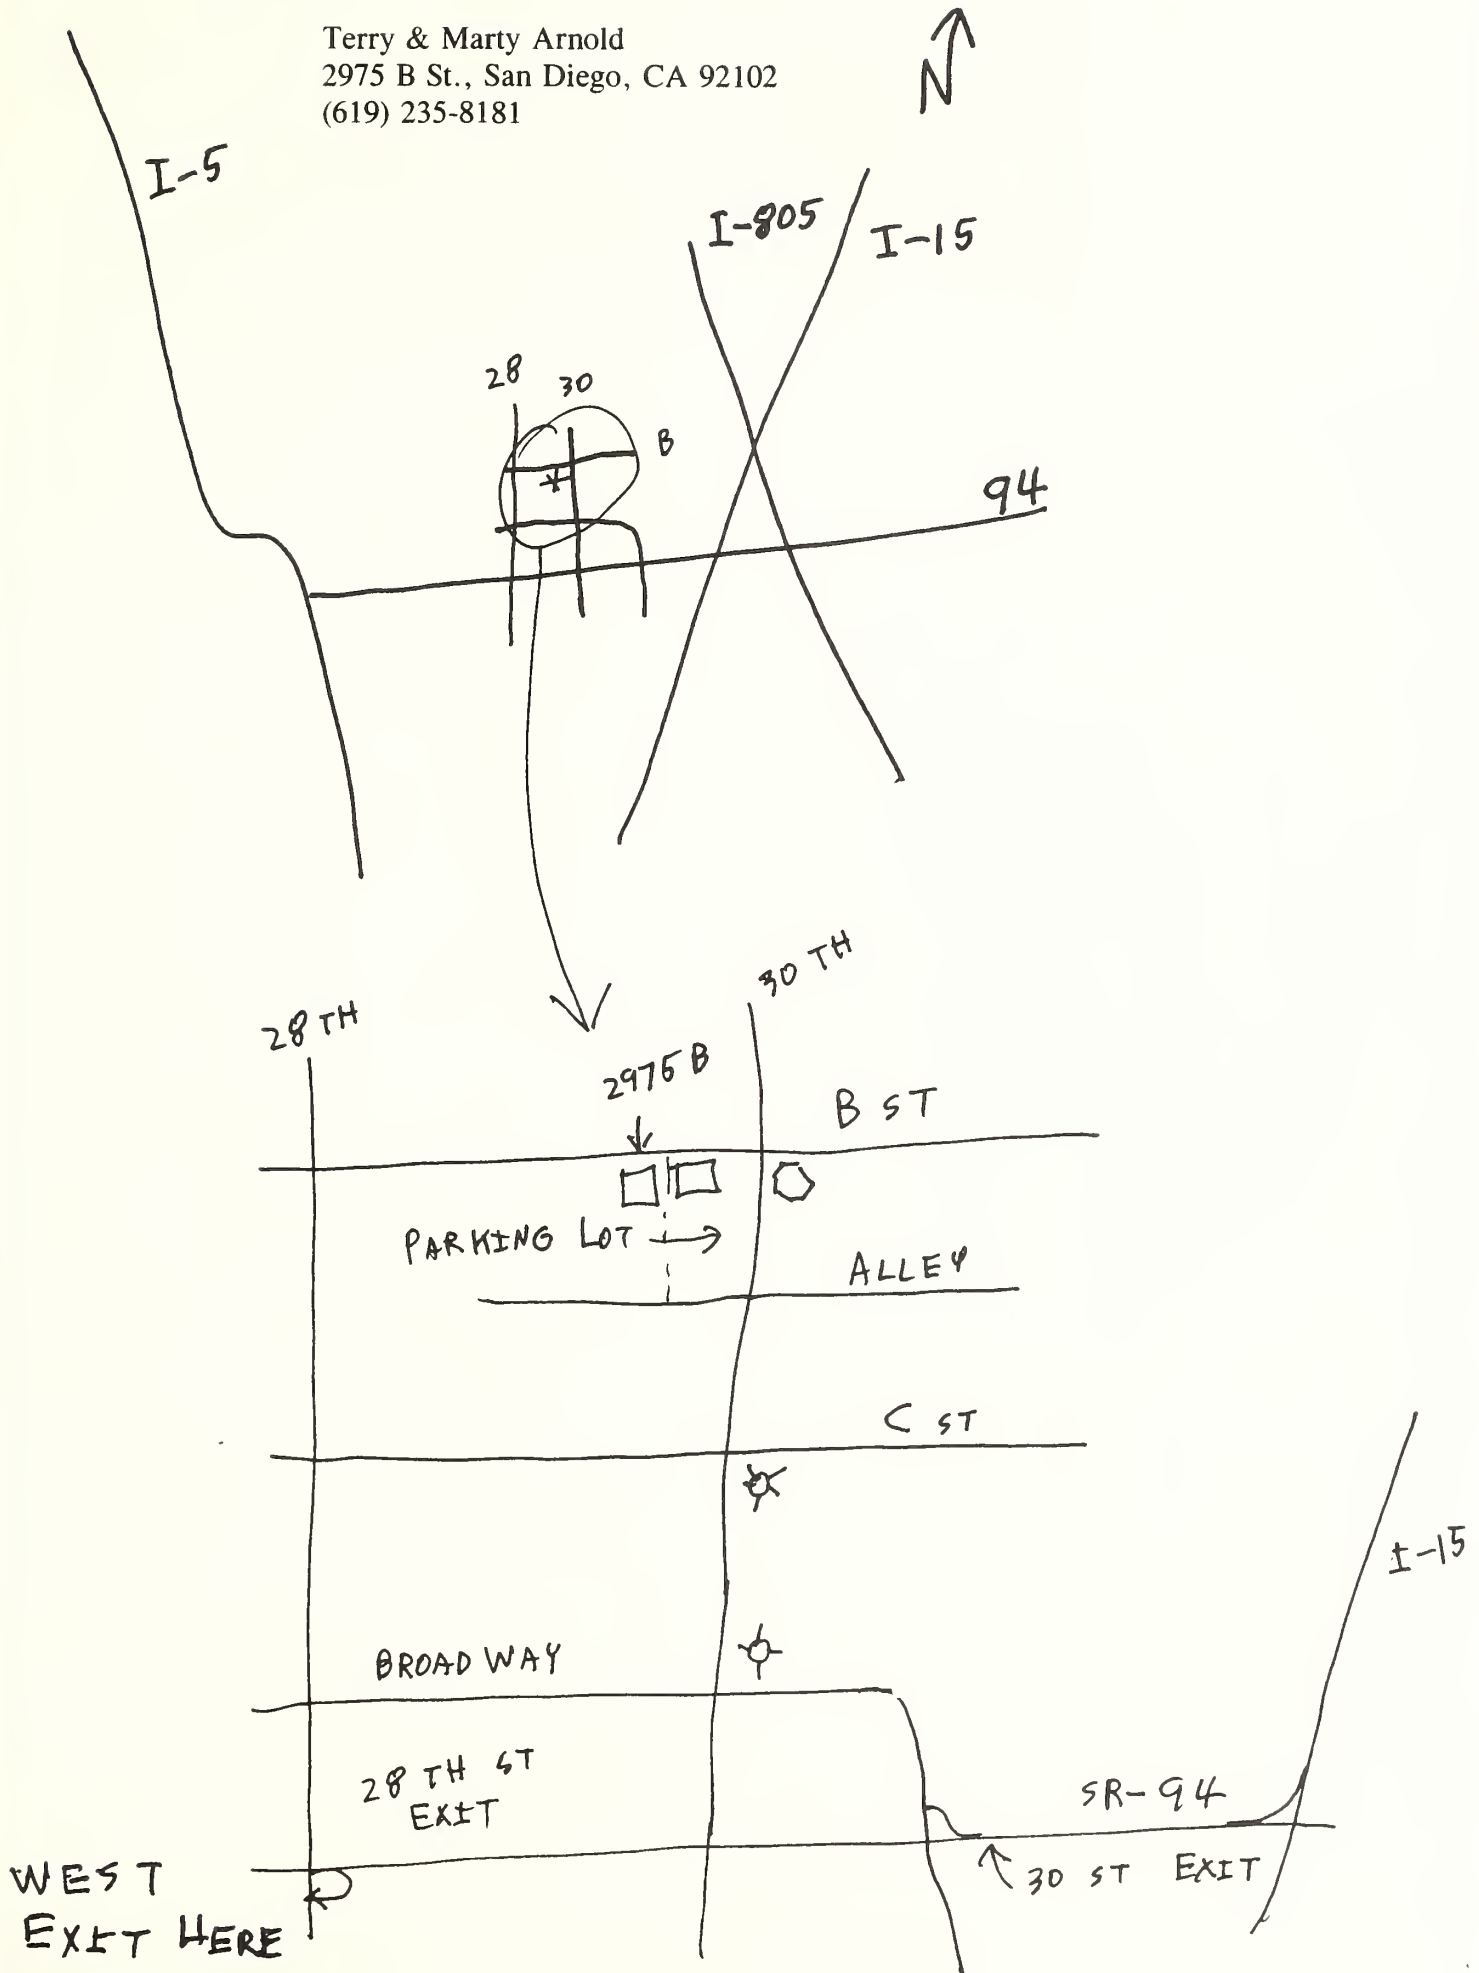 Terry & Marty Arnold
2975 B St., San Diego, CA 92102
(619) 235-8181
N
I-5
I-805
I-15
28
30
B
94
30 TH
28 TH
2975 B
B ST
PARKING LOT
ALLEY
C ST
I-15
BROADWAY
28 TH ST
EXIT
SR-94
30 ST EXIT
WEST
EXIT HERE